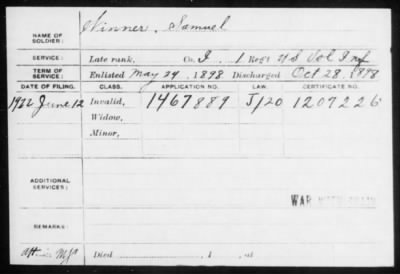 NAME OF SOLDIER: Winner, Samuel
SERVICE: Late rank, Co. I, 1 Regt US Vol Inf
TERM OF SERVICE: Enlisted May 24, 1898 Discharged Oct 28, 1898
DATE OF FILING. CLASS. APPLICATION NO. LAW. CERTIFICATE NO.
1922 June 12 Invalid, 1467889 J/20 1207226
Widow,
Minor,
ADDITIONAL SERVICES:
WAR WITH SPAIN
REMARKS:
Died , 1 , at